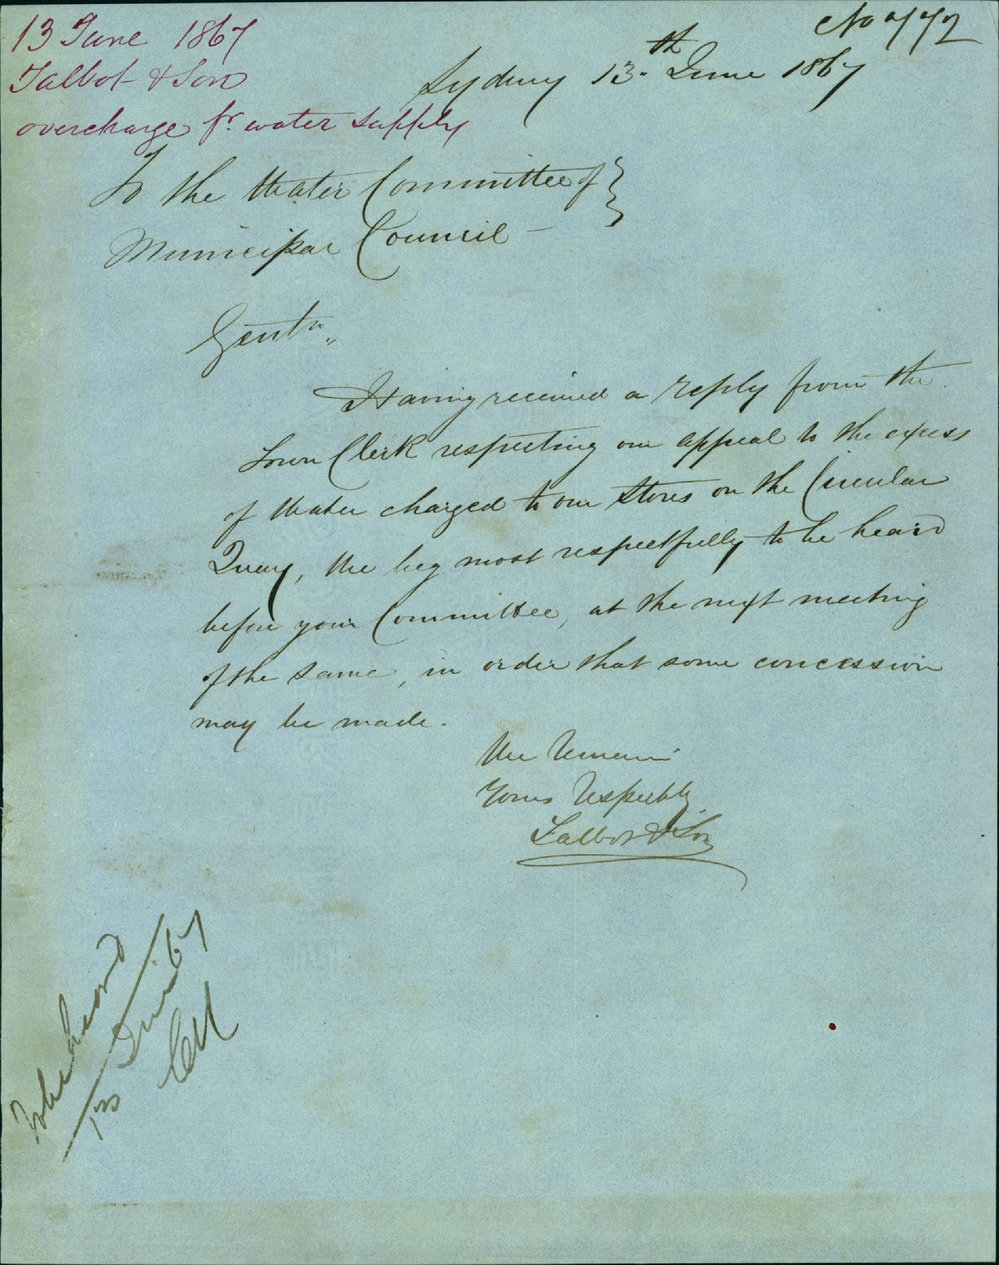 13 June 1867
Talbot & Son
overcharge fr. water supply
No 772
Sydney 13th June 1867
To the Water Committee of
Municipal Council -
Gentn,,
Having received a reply from the
Town Clerk respecting our appeal to the excess
of Water charged to our Stores on the Circular
Quay, We beg most respectfully to be heard
before your Committee, at the next meeting
of the same, in order that some concession
may be made.
We Remain
Yours Respectfly
Talbot & Son
To be heard
13 June 67